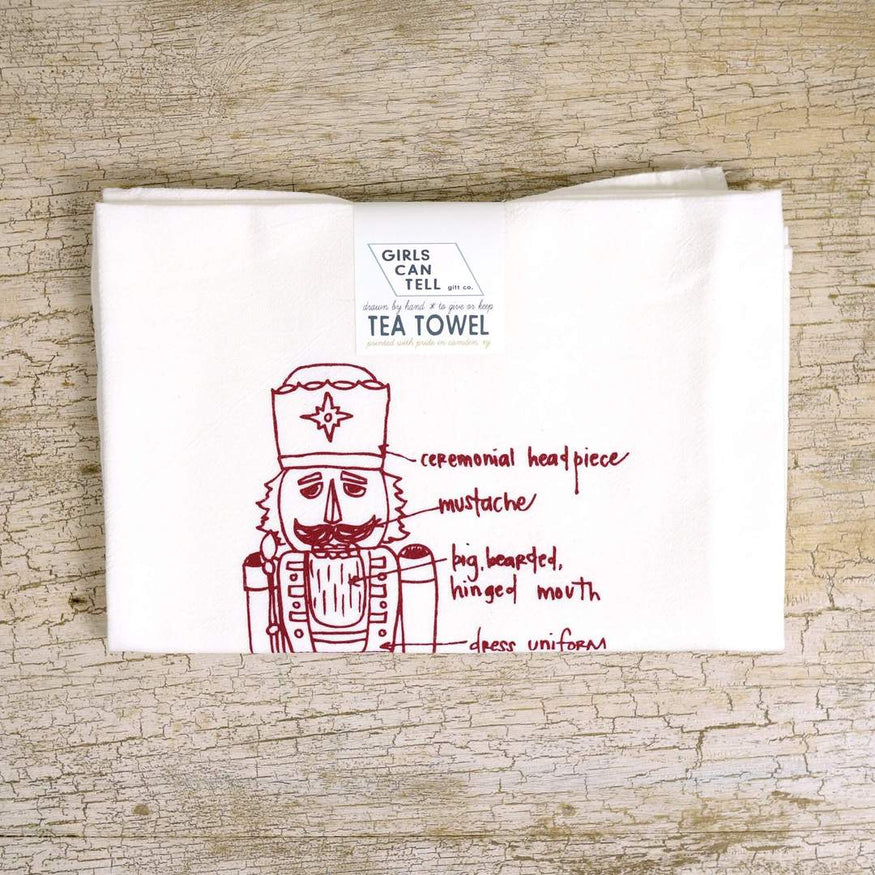 GIRLS
CAN
TELL gift co.
drawn by hand * to give or keep
TEA TOWEL
printed with pride in camden, nj
ceremonial headpiece
mustache
big, bearded,
hinged mouth
dress uniform